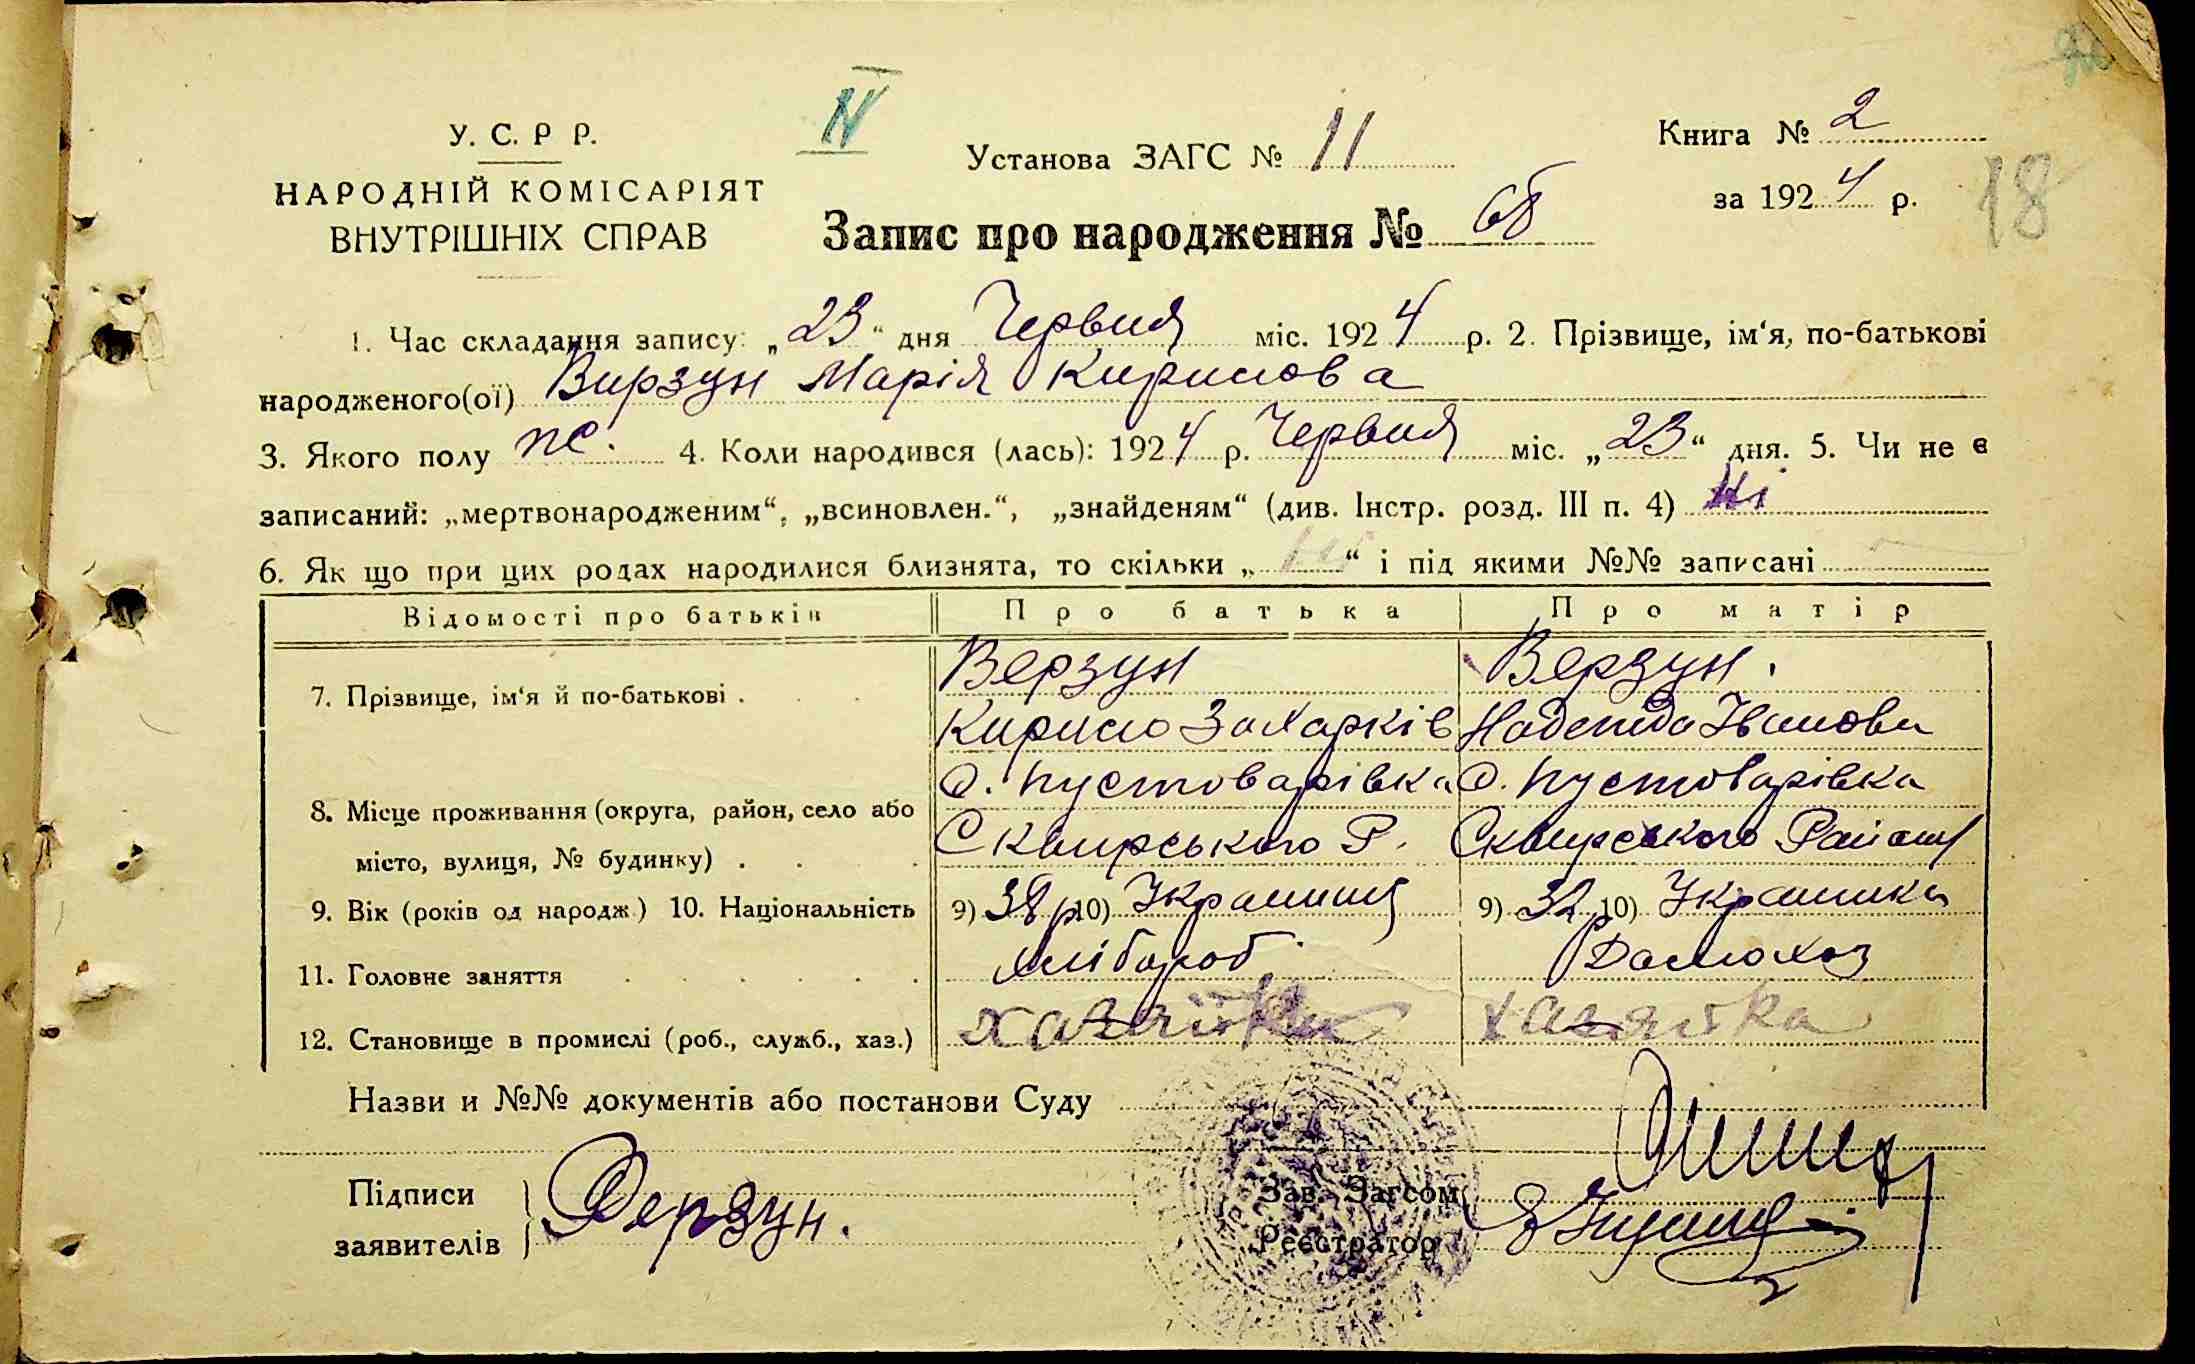 У. С. Р Р.
НАРОДНІЙ КОМІСАРІЯТ
ВНУТРІШНІХ СПРАВ
IV
Установа ЗАГС № 11
Книга № 2
за 1924 р.
18
Запис про народження № 68
1. Час складання запису: „23“ дня Червня міс. 1924 р. 2. Прізвище, ім‘я, по-батькові
народженого(ої) Вирзун Марія Кирилова
3. Якого полу ж. 4. Коли народився (лась): 1924 р. Червня міс. „23“ дня. 5. Чи не є
записаний: „мертвонародженим“, „всиновлен.“, „знайденям“ (див. Інстр. розд. III п. 4) Ні
6. Як що при цих родах народилися близнята, то скільки „ні“ і під якими №№ записані
Відомості про батьків Про батька Про матір
7. Прізвище, ім‘я й по-батькові . Верзун Верзун.
Кирило Захарків Надежда Іванови
8. Місце проживання (округа, район, село або с. Пустоварівка с. Пустоварівка
місто, вулиця, № будинку) . Сквирського Р. Сквирського Району
9. Вік (років од народж.) 10. Національність 9) 38 р 10) Українець 9) 32 р 10) Українка
11. Головне заняття Хлібороб Домохоз
12. Становище в промислі (роб., служб., хаз.) хазяйка хазяйка
Назви и №№ документів або постанови Суду
Підписи
заявителів Верзун.
Зав. Загсом
Реєстратор